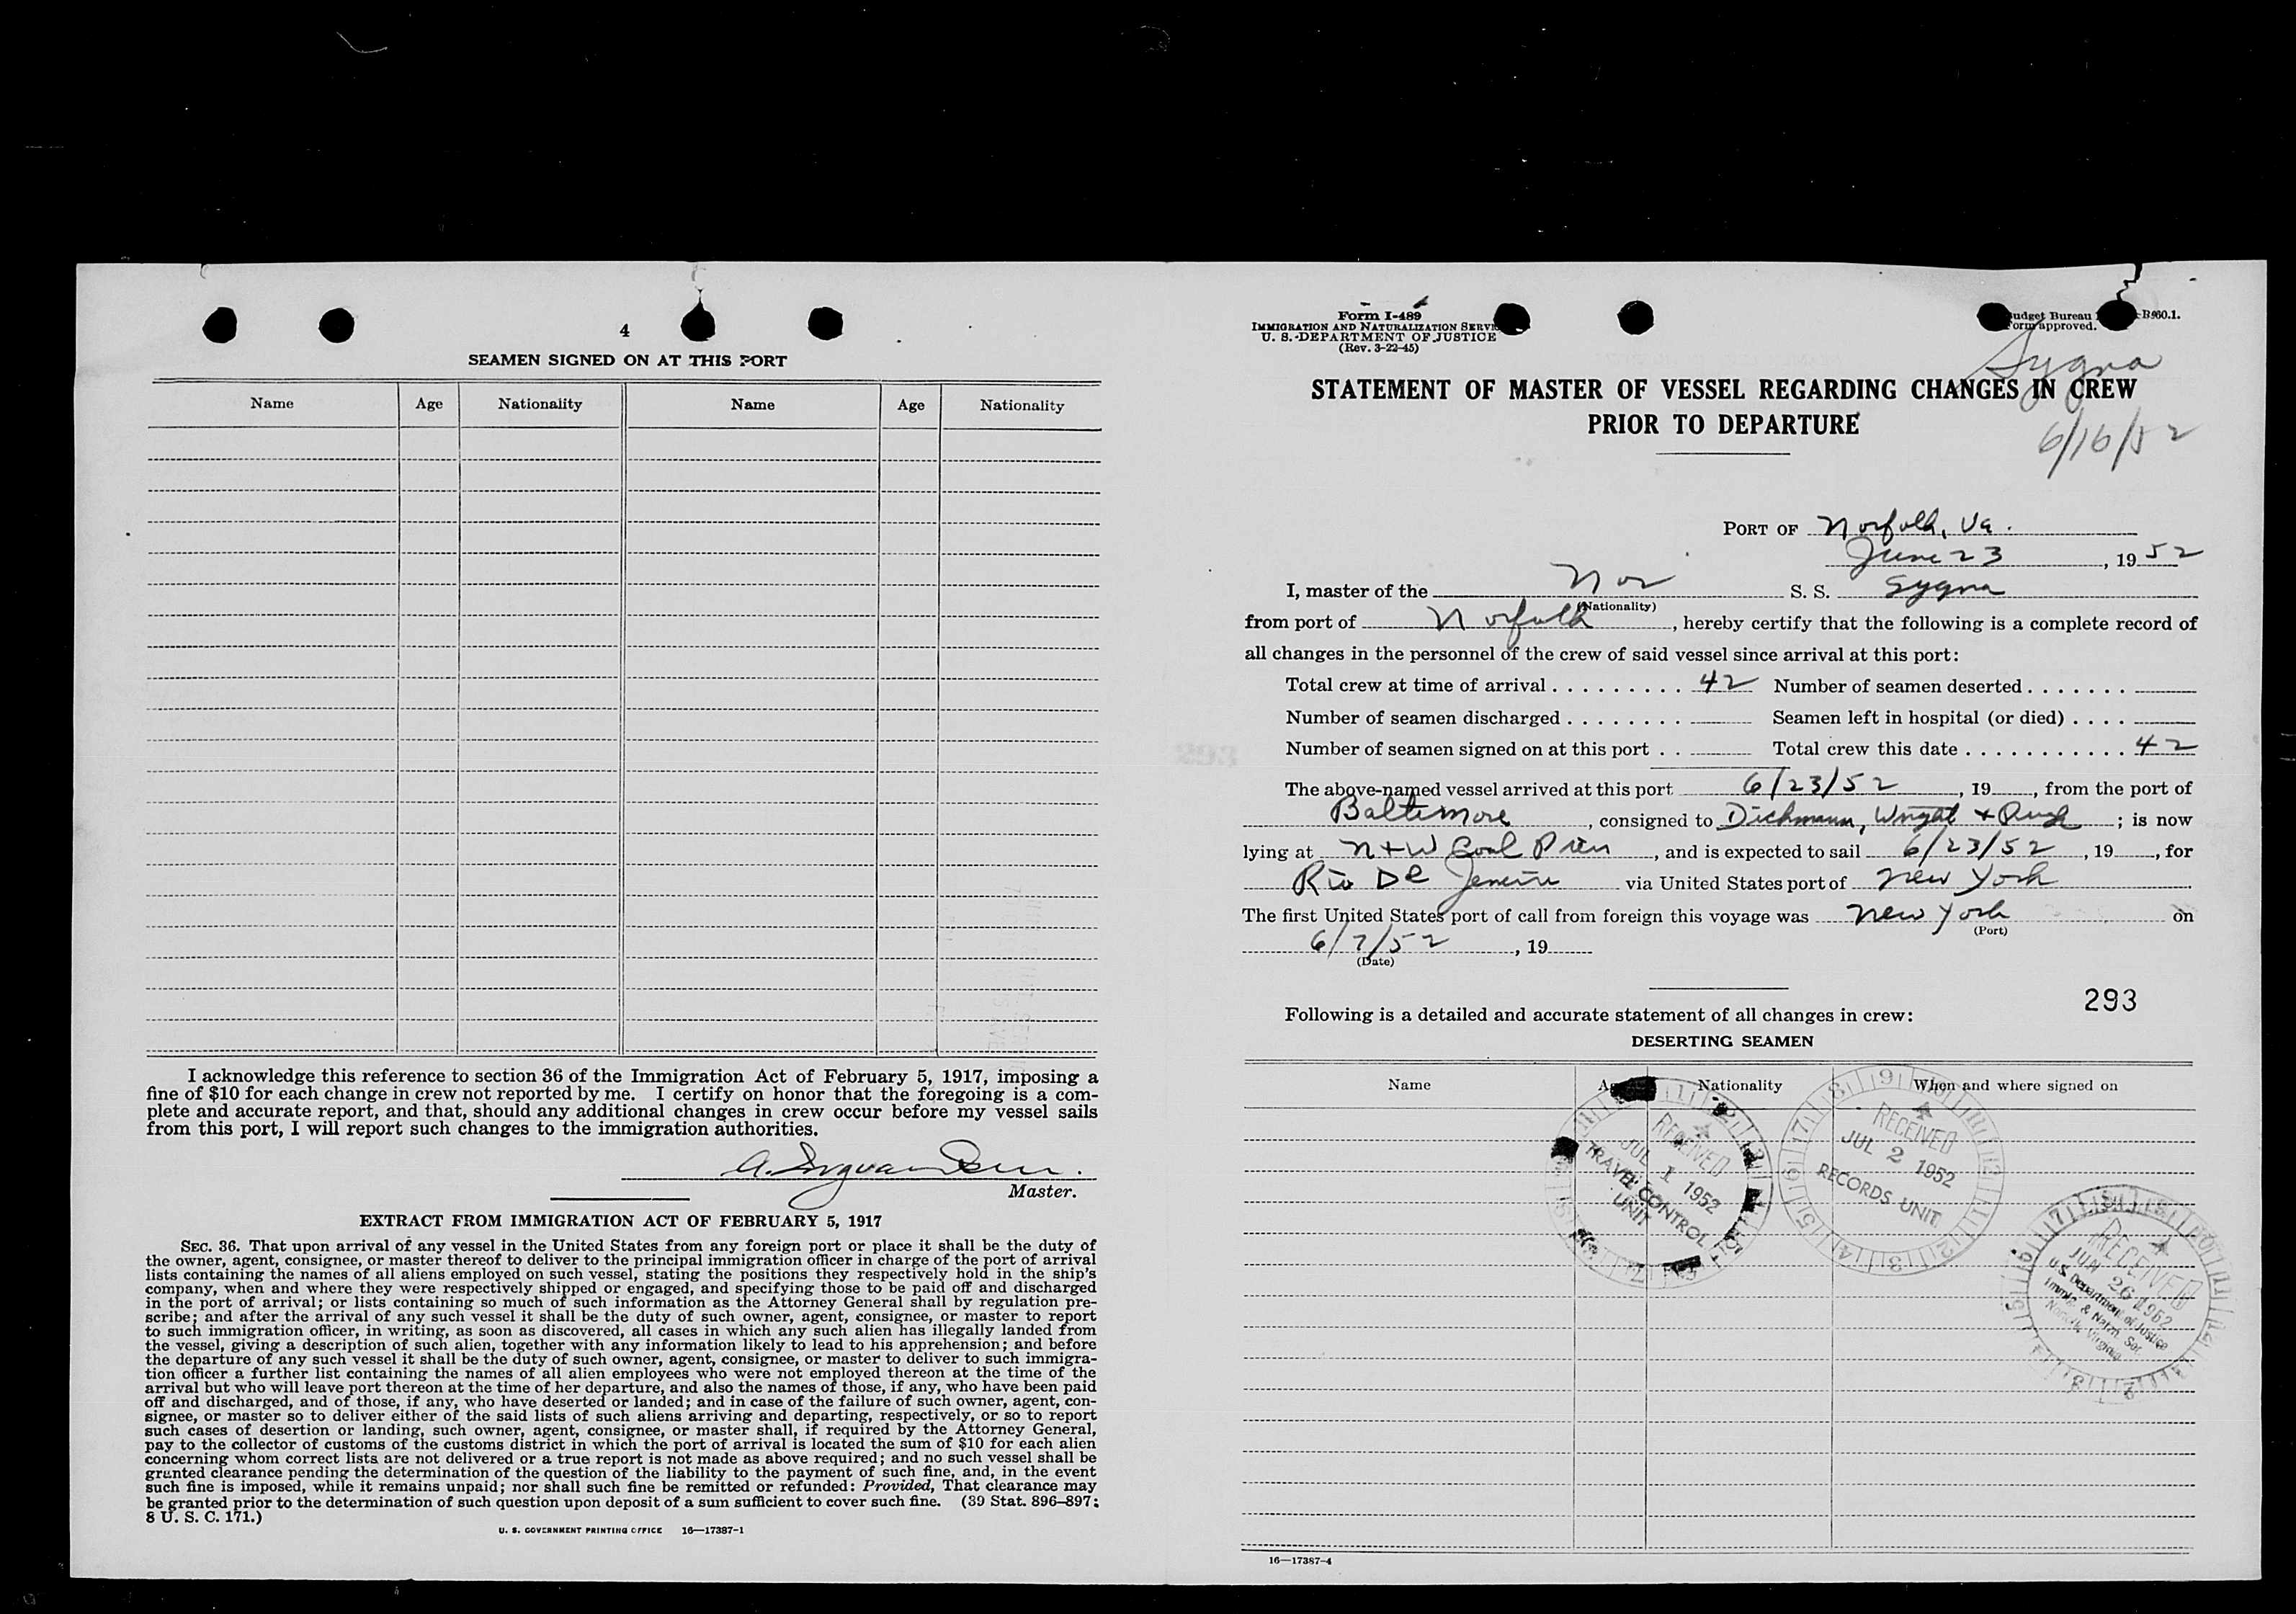 4
SEAMEN SIGNED ON AT THIS PORT
Name Age Nationality Name Age Nationality
I acknowledge this reference to section 36 of the Immigration Act of February 5, 1917, imposing a
fine of $10 for each change in crew not reported by me. I certify on honor that the foregoing is a com-
plete and accurate report, and that, should any additional changes in crew occur before my vessel sails
from this port, I will report such changes to the immigration authorities.
Master.
EXTRACT FROM IMMIGRATION ACT OF FEBRUARY 5, 1917
SEC. 36. That upon arrival of any vessel in the United States from any foreign port or place it shall be the duty of
the owner, agent, consignee, or master thereof to deliver to the principal immigration officer in charge of the port of arrival
lists containing the names of all aliens employed on such vessel, stating the positions they respectively hold in the ship's
company, when and where they were respectively shipped or engaged, and specifying those to be paid off and discharged
in the port of arrival; or lists containing so much of such information as the Attorney General shall by regulation pre-
scribe; and after the arrival of any such vessel it shall be the duty of such owner, agent, consignee, or master to report
to such immigration officer, in writing, as soon as discovered, all cases in which any such alien has illegally landed from
the vessel, giving a description of such alien, together with any information likely to lead to his apprehension; and before
the departure of any such vessel it shall be the duty of such owner, agent, consignee, or master to deliver to such immigra-
tion officer a further list containing the names of all alien employees who were not employed thereon at the time of the
arrival but who will leave port thereon at the time of her departure, and also the names of those, if any, who have been paid
off and discharged, and of those, if any, who have deserted or landed; and in case of the failure of such owner, agent, con-
signee, or master so to deliver either of the said lists of such aliens arriving and departing, respectively, or so to report
such cases of desertion or landing, such owner, agent, consignee, or master shall, if required by the Attorney General,
pay to the collector of customs of the customs district in which the port of arrival is located the sum of $10 for each alien
concerning whom correct lists are not delivered or a true report is not made as above required; and no such vessel shall be
granted clearance pending the determination of the question of the liability to the payment of such fine, and, in the event
such fine is imposed, while it remains unpaid; nor shall such fine be remitted or refunded: Provided, That clearance may
be granted prior to the determination of such question upon deposit of a sum sufficient to cover such fine. (39 Stat. 896–897;
8 U. S. C. 171.)
U. S. GOVERNMENT PRINTING OFFICE 16—17387-1
Form I-489
IMMIGRATION AND NATURALIZATION SERVI
U. S. DEPARTMENT OF JUSTICE
(Rev. 3-22-45)
udget Bureau B960.1.
Form approved.
Sygna
STATEMENT OF MASTER OF VESSEL REGARDING CHANGES IN CREW
PRIOR TO DEPARTURE
6/16/52
PORT OF Norfolk, Va.
June 23, 1952
I, master of the Nor S. S. Sygna
(Nationality)
from port of Norfolk, hereby certify that the following is a complete record of
all changes in the personnel of the crew of said vessel since arrival at this port:
Total crew at time of arrival 42 Number of seamen deserted
Number of seamen discharged Seamen left in hospital (or died)
Number of seamen signed on at this port Total crew this date 42
The above-named vessel arrived at this port 6/23/52, 19, from the port of
Baltimore, consigned to Dichmann, Wright + Pugh; is now
lying at N+W Coal Pier, and is expected to sail 6/23/52, 19, for
Rio De Janeiro via United States port of New York
The first United States port of call from foreign this voyage was New York on
(Port)
6/7/52, 19
(Date)
293
Following is a detailed and accurate statement of all changes in crew:
DESERTING SEAMEN
Name Age Nationality When and where signed on
RECEIVED
JUL 1 1952
TRAVEL CONTROL
UNIT
RECEIVED
JUL 2 1952
RECORDS UNIT
RECEIVED
JUN 26 1952
U.S. Department of Justice
Immig. & Natzn. Ser.
Norfolk, Virginia
16—17387-4